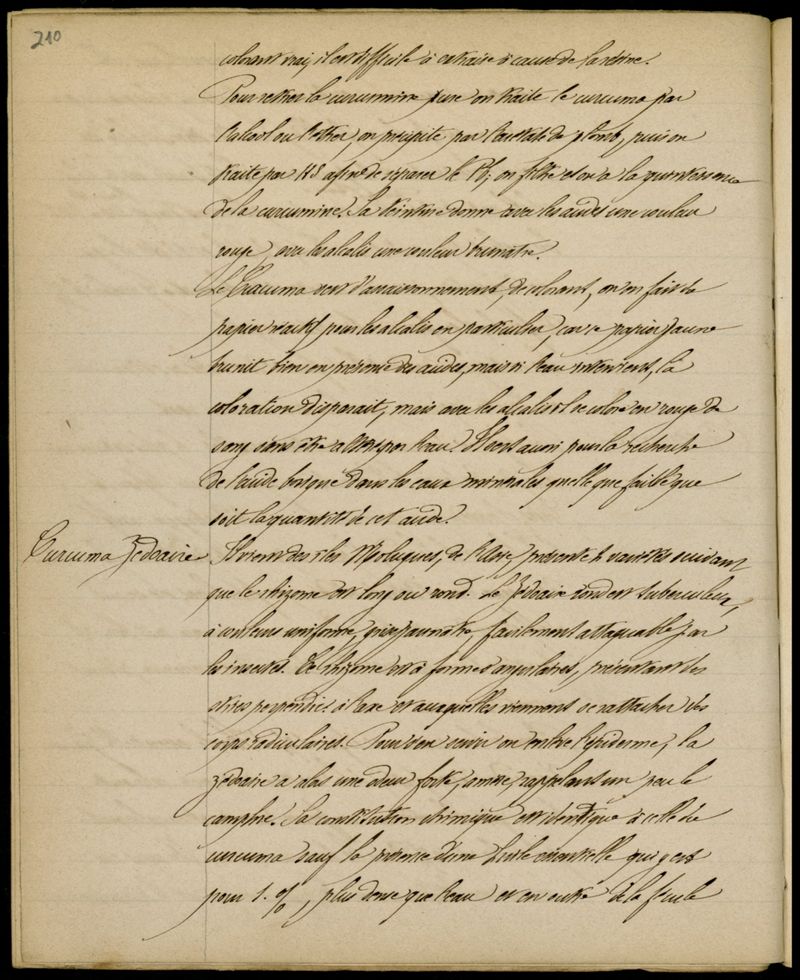 210
colorant vrai, il est difficile à extraire à cause de la résine.
Pour retirer la curcumine pure on traite le curcuma par
l'alcool ou l'ether, on précipite par l'acétate de plomb, puis on
traite par HS afin de séparer le Pb, on filtre et on a la quintessence
de la curcumine. La teinture donne avec les acides une couleur
rouge, avec les alcalis une couleur brunâtre.
Le Curcuma sert d'assaisonnement, de colorant, on en fait du
papier réactif pour les alcalis en particulier, car ce papier jaune
brunit bien en présence des acides, mais si l'eau intervient, la
coloration disparait, mais avec les alcalis il se colore en rouge de
sang sans être altéré par l'eau. Il sert aussi pour la recherche
de l'acide borique dans les eaux minérales quelle que faible que
soit la quantité de cet acide.
Curcuma Zédoaire Il vient des îles Moluques, de l'Asie, présente 2 variétés suivant
que le rhizome est long ou rond. Le Zédoaire rond est tuberculeux,
à couleur uniforme, gris jaunâtre, facilement attaquable par
les insectes. Le rhizome est à formes angulaires, présentant des
stries perpendres à l'axe et auxquelles viennent se rattacher des
corps radiculaires. Pour s'en servir on enlève l'épiderme, la
zédoaire a alors une odeur forte, amère, rappelant un peu le
camphre. Sa constitution chimique est identique à celle du
curcuma sauf la présence d'une huile essentielle qui y est
pour 1. %, plus dense que l'eau et en outre de la fécule